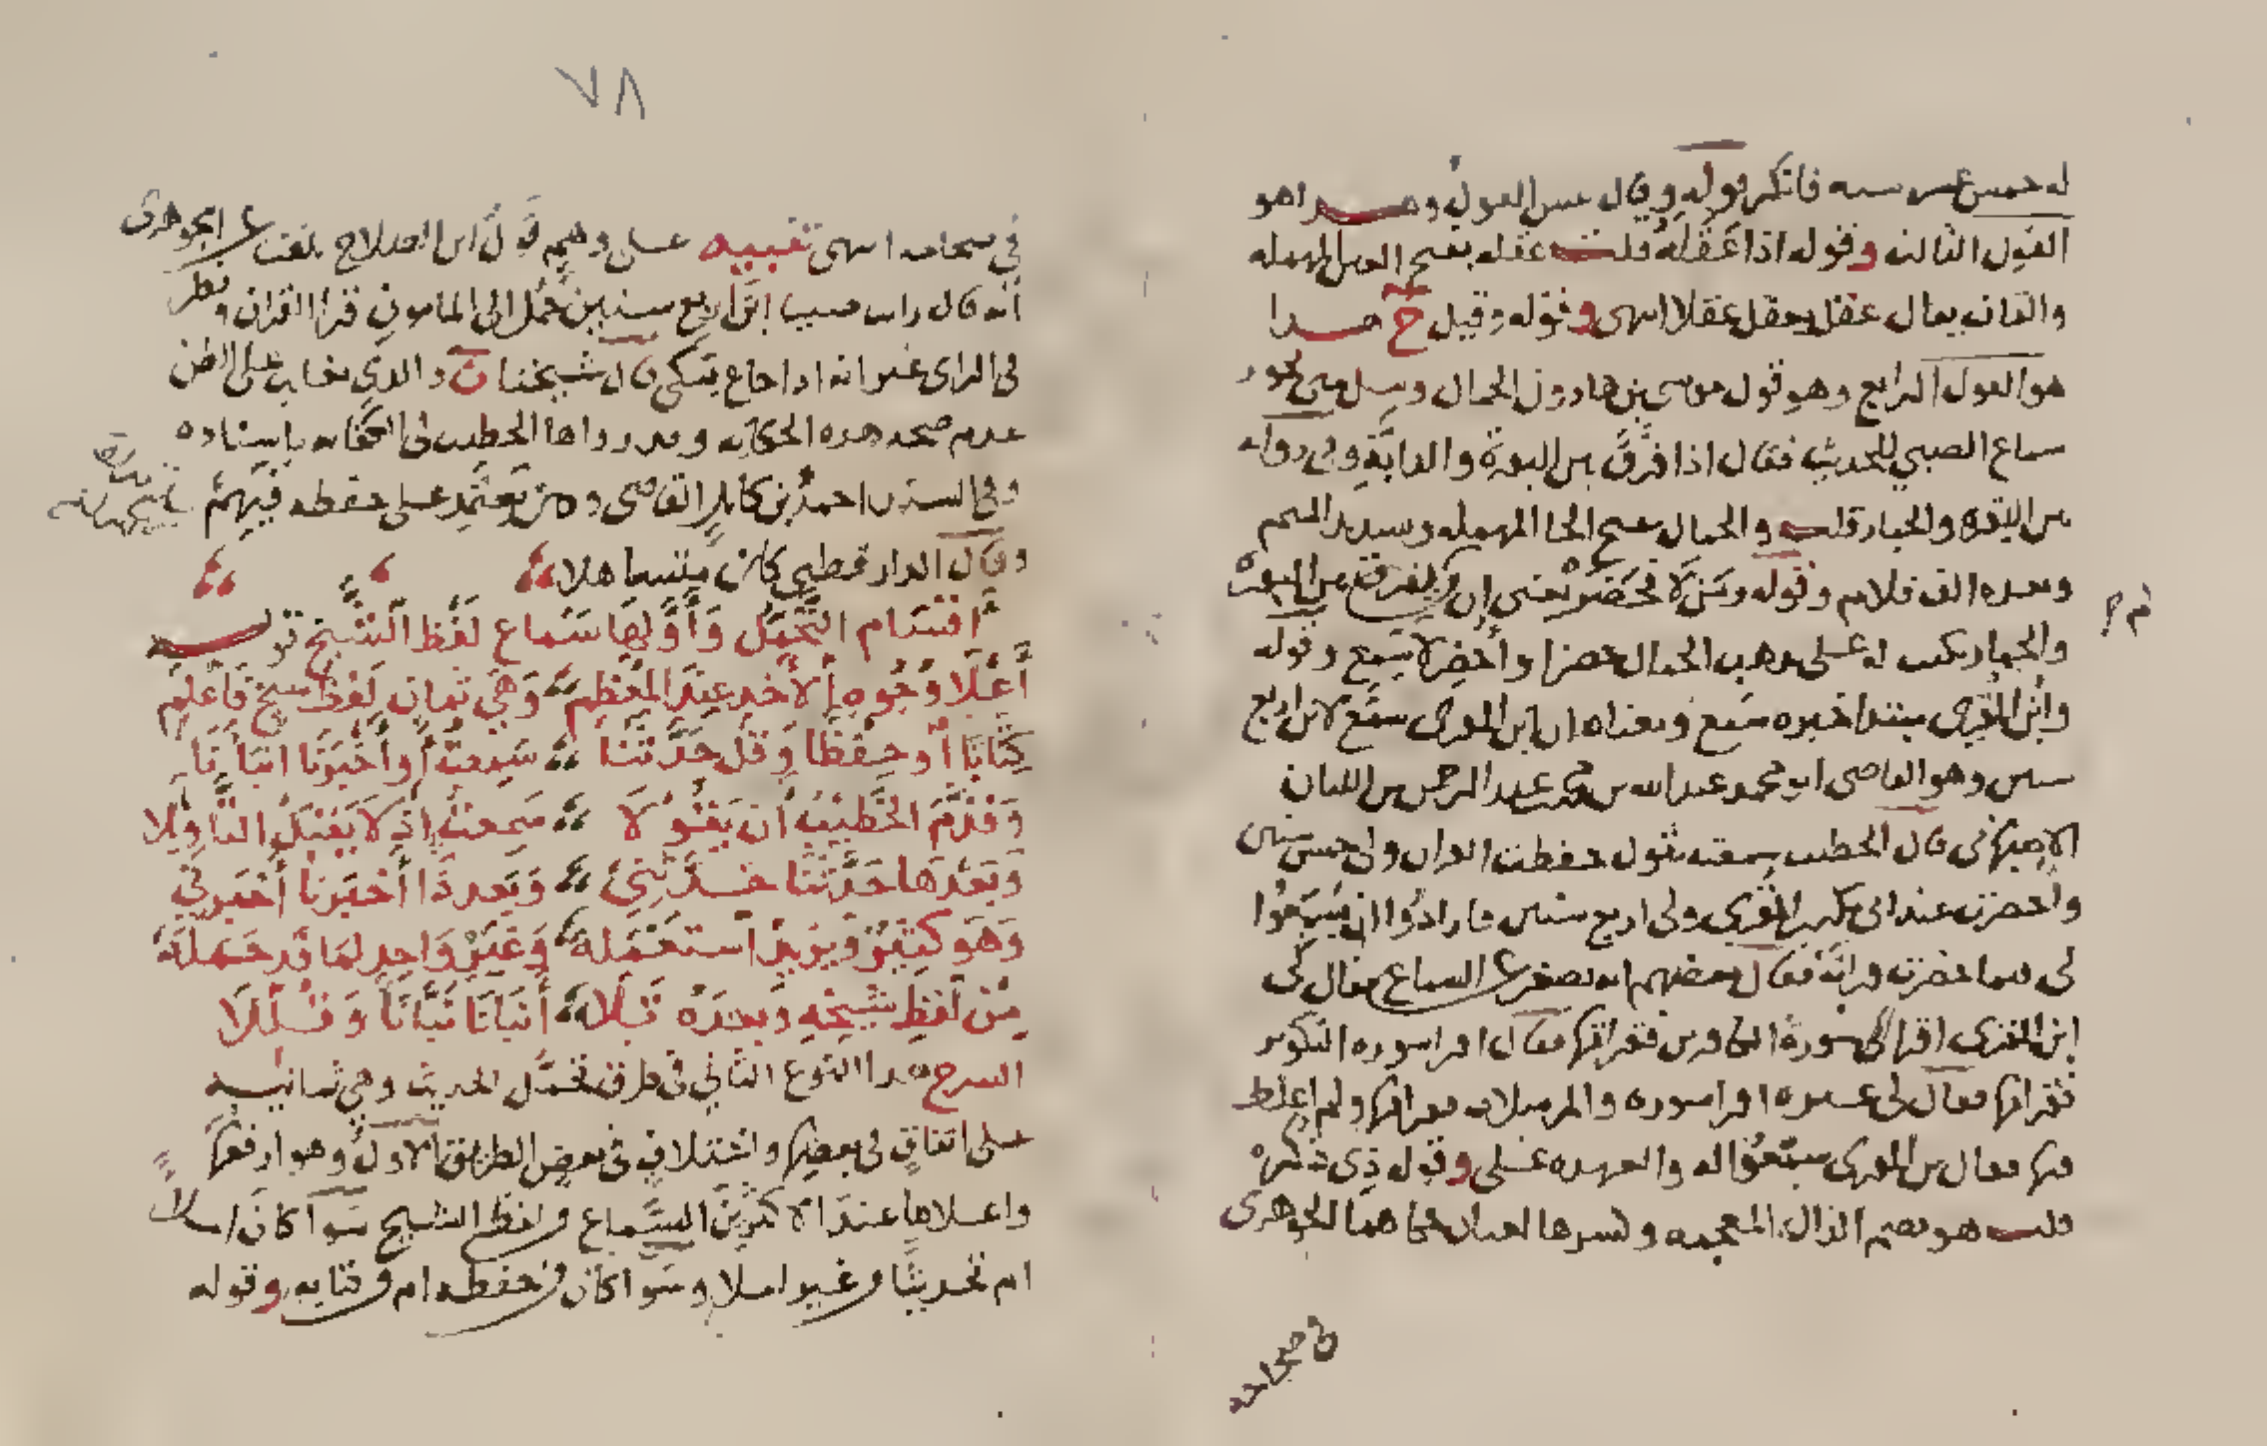 له خمس عشر سنه فانكر قوله وقال بئس القول وهذا هو
القول الثالث وقوله اذا عَقَلَهُ قلت عقله بفتح العين المهمله
والقاف يقال عقل يعقل عقلا انتهى وقوله وقيل خ هذا
هو القول الرابع وهو قول موسى بن هارون الحمال وسيل متى يجوز
سماع الصبي للحديث فقال اذا فَرَّقَ بين البقرة والدابة وفي روايه
بين البقره والحمار قلت والحمال بفتح الحا المهمله وتشديد الميم
وبعده الف فلام وقوله ومن لا فحضر يعني ان لم يفرق بين البقرة
والحمار يكتب له على مذهب الحمال حضر او أُحضِر لا سمع وقوله
وابن المقري مبتدا خبره سَمَّع ومعناه ان ابن المقرى سمَّع لابن اربع
سنين وهو القاضى ابو محمد عبد الله بن محمد بن عبد الرحمن بن اللبان
الاصبهاني قال الخطيب سمعته يقول حفظت القران ولي خمس سنين
واحضرت عند ابى بكر بن المقري ولى اربع سنين فارادوا ان يسمعوا
لى فيما حضرت قراته فقال بعضهم انه يصغر عن السماع فقال لى
ابن المقرى اقرا لى سورة الكافرين فقراتها فقال اقرا سوره التكوير
فقراتها فقال لى غيره اقرا سوره والمرسلات فقراتها ولم اغلط
فيها فقال بن المقرى سمّعوا له والعهده على وقوله ذي ذكره
قلت هو بضم الذال المعجمه وكسرها لغتان حكاهما الجوهرى
في صحاحه
٧٨
في صحاحه انتهى تنبيه على وهم قول ابن الصلاح بلغنا عن ابراهيم الجوهرى
أنه قال رايت صبيا ابن اربع سنين حُمل الى المامون قد قرا القران ونظر
فى الراى غير انه اذا جاع يبكى قال شيخنا ن والذي يغلب على الظن
عدم صحه هذه الحكايه وقد رواها الخطيب فى الكفايه باسناده
وفى السند احمد بن كامل القاضى وكان يعتمد على حفظه فيَهِم
وقال الدارقطني كان متساهلا
اقسام التَّحَمُّل وَأَوَّلُهَا سَماع لَفْظِ الشَّيخ قوله
أَعْلَا وُجُوهِ الأَخذِ عِندَ المُعْظَمِ وَهْيَ ثمانٍ لَفْظُ شيخٍ فَاعْلَمِ
كِتَابًا أو حِفْظًا وَقُل حَدَّثَنَا سَمِعتُ أو أَخْبَرَنَا أنبَأنَا
وَقَدَّمَ الخَطِيبُ أن يَقُولَا سَمِعتُ إذ لَا يَقبَلُ التَّأوِيلا
وَبَعْدَهَا حَدَّثَنَا حَدَّثَنِي وَبَعد ذَا أَخبَرَنا أَخبَرنِي
وَهوَ كَثِيرٌ وَيَزِيدُ استَعْمَلَه وَغَيْرُ وَاحِدٍ لِمَا قَد حَمَلَهُ
مِنْ لَفْظِ شيخِهِ وَبعدَهُ تَلَا أَنبَأنَا نَبَّأنَا وَقُلِّلَا
الشرح هذا النوع الثاني فى طرق تحمُّل الحديث وهي ثمانيه
على اتفاقٍ فى بعضها واختلافٍ فى بعض الطريق الاول وهو ارفعها
واعلاها عند الاكثرين السَّماع من لفظ الشيخ سوا كان املاً
ام تحديثًا من غير املا وسوا كان من حفظه ام من كتابه وقوله